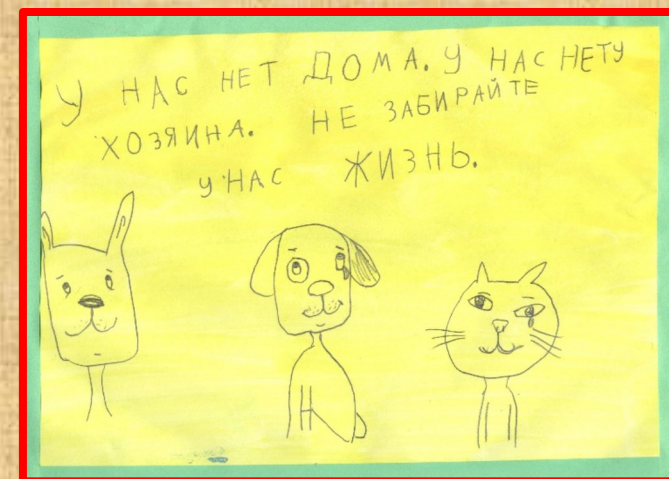 У НАС НЕТ ДОМА. У НАС НЕТУ
ХОЗЯИНА. НЕ ЗАБИРАЙТЕ
У НАС ЖИЗНЬ.